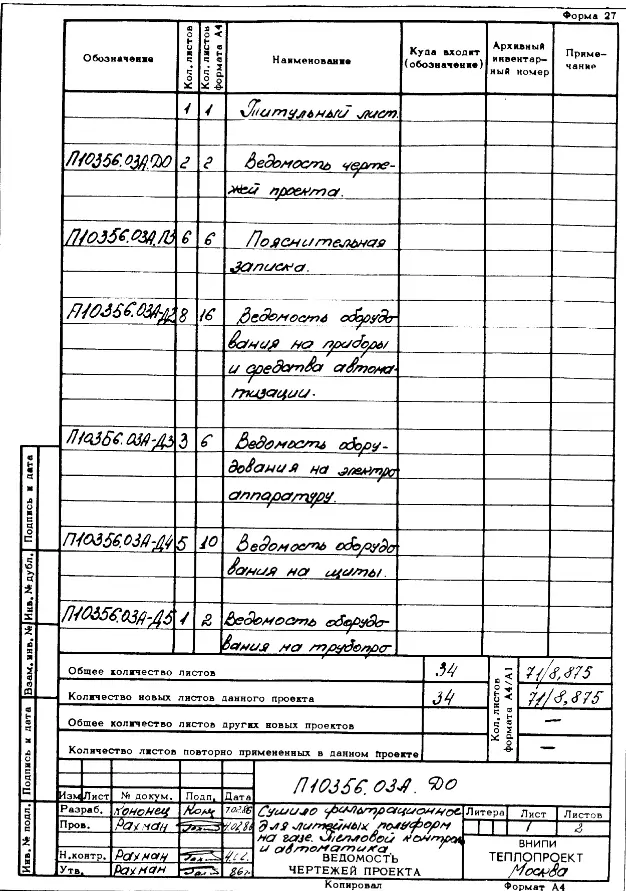 Форма 27
Обозначение
Кол. листов
Кол. листов формата А4
Наименование
Куда входит (обозначение)
Архивный инвентар-ный номер
Приме-чание
1 1 Титульный лист.
П10356.03А.ДО 2 2 Ведомость черте-
жей проекта.
П10356.03А.ПЗ 6 6 Пояснительная
записка.
П10356.03А-Д2 8 16 Ведомость оборудо-
вания на приборы
и средства автома-
тизации.
П10356.03А-Д3 3 6 Ведомость обору-
дования на электро
аппаратуру.
П10356.03А-Д4 5 10 Ведомость оборудо
вания на щиты.
П10356.03А-Д5 1 2 Ведомость оборудо
вания на трубопро
Общее количество листов 34
Количество новых листов данного проекта 34
Общее количество листов других новых проектов
Количество листов повторно примененных в данном проекте
Кол. листов формата А4/А1
71/8,875
71/8,875
—
—
П10356.03А.ДО
Изм Лист № докум. Подп. Дата
Разраб. Кононец
Пров. Рахман
Н.контр. Рахман
Утв. Рахман 86г.
Сушило фильтрационное
для литейных полуформ
на базе. Тепловой контроль
и автоматика
ВЕДОМОСТЬ
ЧЕРТЕЖЕЙ ПРОЕКТА
Литера Лист Листов
1 2
ВНИПИ
ТЕПЛОПРОЕКТ
Москва
Копировал Формат А4
Подпись и дата
Инв. № дубл.
Взам. инв. №
Подпись и дата
Инв. № подл.